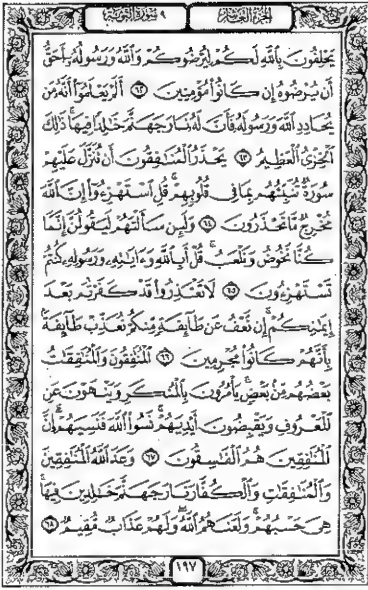 الجزء العاشر
٩ سورة التوبة
يَحْلِفُونَ بِاللَّهِ لَكُمْ لِيُرْضُوكُمْ وَاللَّهُ وَرَسُولُهُ أَحَقُّ
أَن يُرْضُوهُ إِن كَانُوا مُؤْمِنِينَ ٦٢ أَلَمْ يَعْلَمُوا أَنَّهُ مَن
يُحَادِدِ اللَّهَ وَرَسُولَهُ فَأَنَّ لَهُ نَارَ جَهَنَّمَ خَالِدًا فِيهَا ذَٰلِكَ
الْخِزْيُ الْعَظِيمُ ٦٣ يَحْذَرُ الْمُنَافِقُونَ أَن تُنَزَّلَ عَلَيْهِمْ
سُورَةٌ تُنَبِّئُهُم بِمَا فِي قُلُوبِهِمْ قُلِ اسْتَهْزِءُوا إِنَّ اللَّهَ
مُخْرِجٌ مَّا تَحْذَرُونَ ٦٤ وَلَئِن سَأَلْتَهُمْ لَيَقُولُنَّ إِنَّمَا
كُنَّا نَخُوضُ وَنَلْعَبُ قُلْ أَبِاللَّهِ وَءَايَاتِهِ وَرَسُولِهِ كُنتُمْ
تَسْتَهْزِءُونَ ٦٥ لَا تَعْتَذِرُوا قَدْ كَفَرْتُم بَعْدَ
إِيمَانِكُمْ إِن نَّعْفُ عَن طَائِفَةٍ مِّنكُمْ نُعَذِّبْ طَائِفَةً
بِأَنَّهُمْ كَانُوا مُجْرِمِينَ ٦٦ الْمُنَافِقُونَ وَالْمُنَافِقَاتُ
بَعْضُهُم مِّن بَعْضٍ يَأْمُرُونَ بِالْمُنكَرِ وَيَنْهَوْنَ عَنِ
الْمَعْرُوفِ وَيَقْبِضُونَ أَيْدِيَهُمْ نَسُوا اللَّهَ فَنَسِيَهُمْ إِنَّ
الْمُنَافِقِينَ هُمُ الْفَاسِقُونَ ٦٧ وَعَدَ اللَّهُ الْمُنَافِقِينَ
وَالْمُنَافِقَاتِ وَالْكُفَّارَ نَارَ جَهَنَّمَ خَالِدِينَ فِيهَا
هِيَ حَسْبُهُمْ وَلَعَنَهُمُ اللَّهُ وَلَهُمْ عَذَابٌ مُّقِيمٌ ٦٨
١٩٧